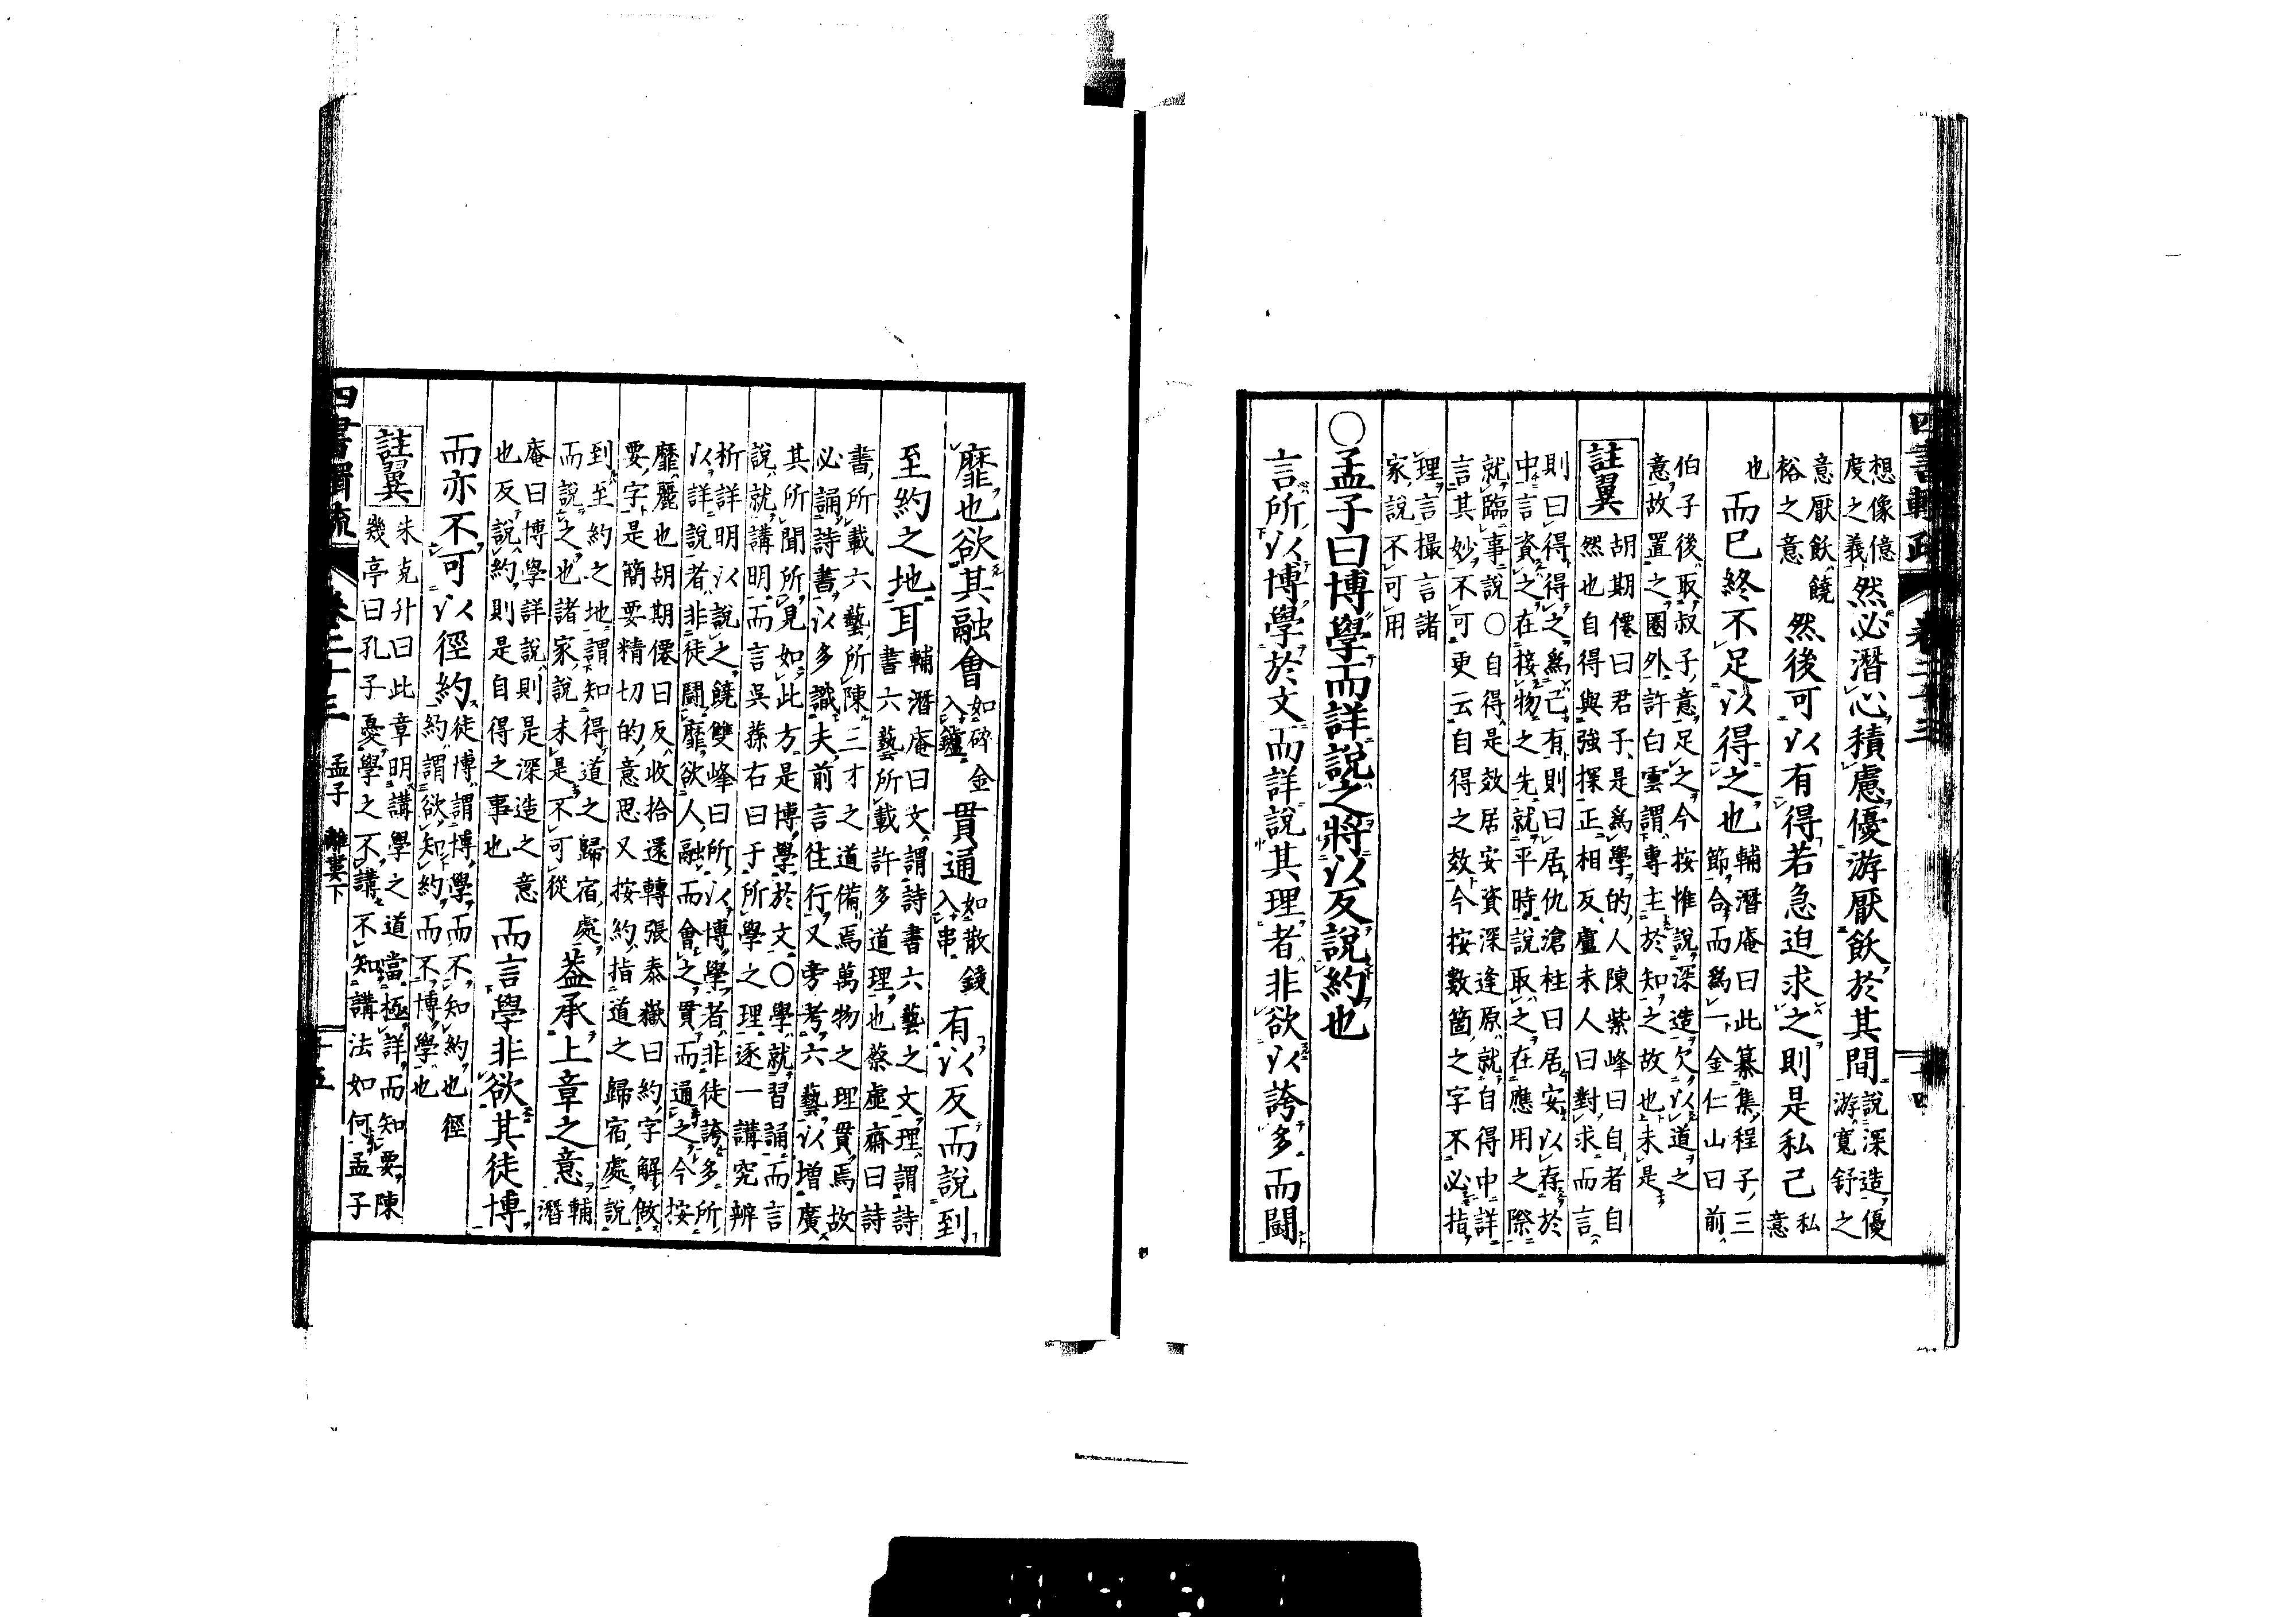 想像億
度之義
然必潛心積慮優游厭飫於其間
說深造優
游寬舒之
意厭飫饒
裕之意
然後可以有得若急迫求之則是私己
私
意
也
而已終不足以得之也
輔潛庵曰此纂集程子三
節合而爲一金仁山曰前
伯子後取叔子意足之今按惟說深造欠以道之
意故置之圈外許白雲謂專主於知之故也未是
註翼
胡期僊曰君子是爲學的人陳紫峰曰自者自
然也自得與強探正相反盧未人曰對求而言
則曰得得之爲己有則曰居仇滄柱曰居安以存於
中言資之在接物之先就平時說取之在應用之際
就臨事說○自得是效居安資深逢原就自得中詳
言其妙不可更云自得之效今按數箇之字不必指
理言撮言諸
家說不可用
○孟子曰博學而詳說之將以反說約也
言所以博學於文而詳說其理者非欲以誇多而闘
靡也欲其融會
如碎金
入鑪
貫通
如散錢
入串
有以反而說到
至約之地耳
輔潛庵曰文謂詩書六藝之文理謂詩
書六藝所載許多道理也蔡虛齋曰詩
書所載六藝所陳三才之道備焉萬物之理貫焉故
必誦詩書以多識夫前言往行又旁考六藝以增廣
其所聞所見如此方是博學於文○學就習誦而言
說就講明而言吳蓀右曰于所學之理逐一講究辨
析詳明以說之饒雙峰曰所以博學者非徒誇多所
以詳說者非徒闘靡欲人融而會之貫而通之今按
靡麗也胡期僊曰反收拾還轉張泰嶽曰約字解做
要字是簡要精切的意思又按約指道之歸宿處說
到至約之地謂知得道之歸宿處
而說之也諸家說未是不可從
蓋承上章之意
輔
潛
庵曰博學詳說則是深造之意
也反說約則是自得之事也
而言學非欲其徒博
而亦不可以徑約
徒博謂博學而不知約也徑
約謂欲知約而不博學也
註翼
朱克升曰此章明講學之道當極詳而知要陳
幾亭曰孔子憂學之不講不知講法如何孟子
四書輯疏
卷二十三
孟子
離婁下